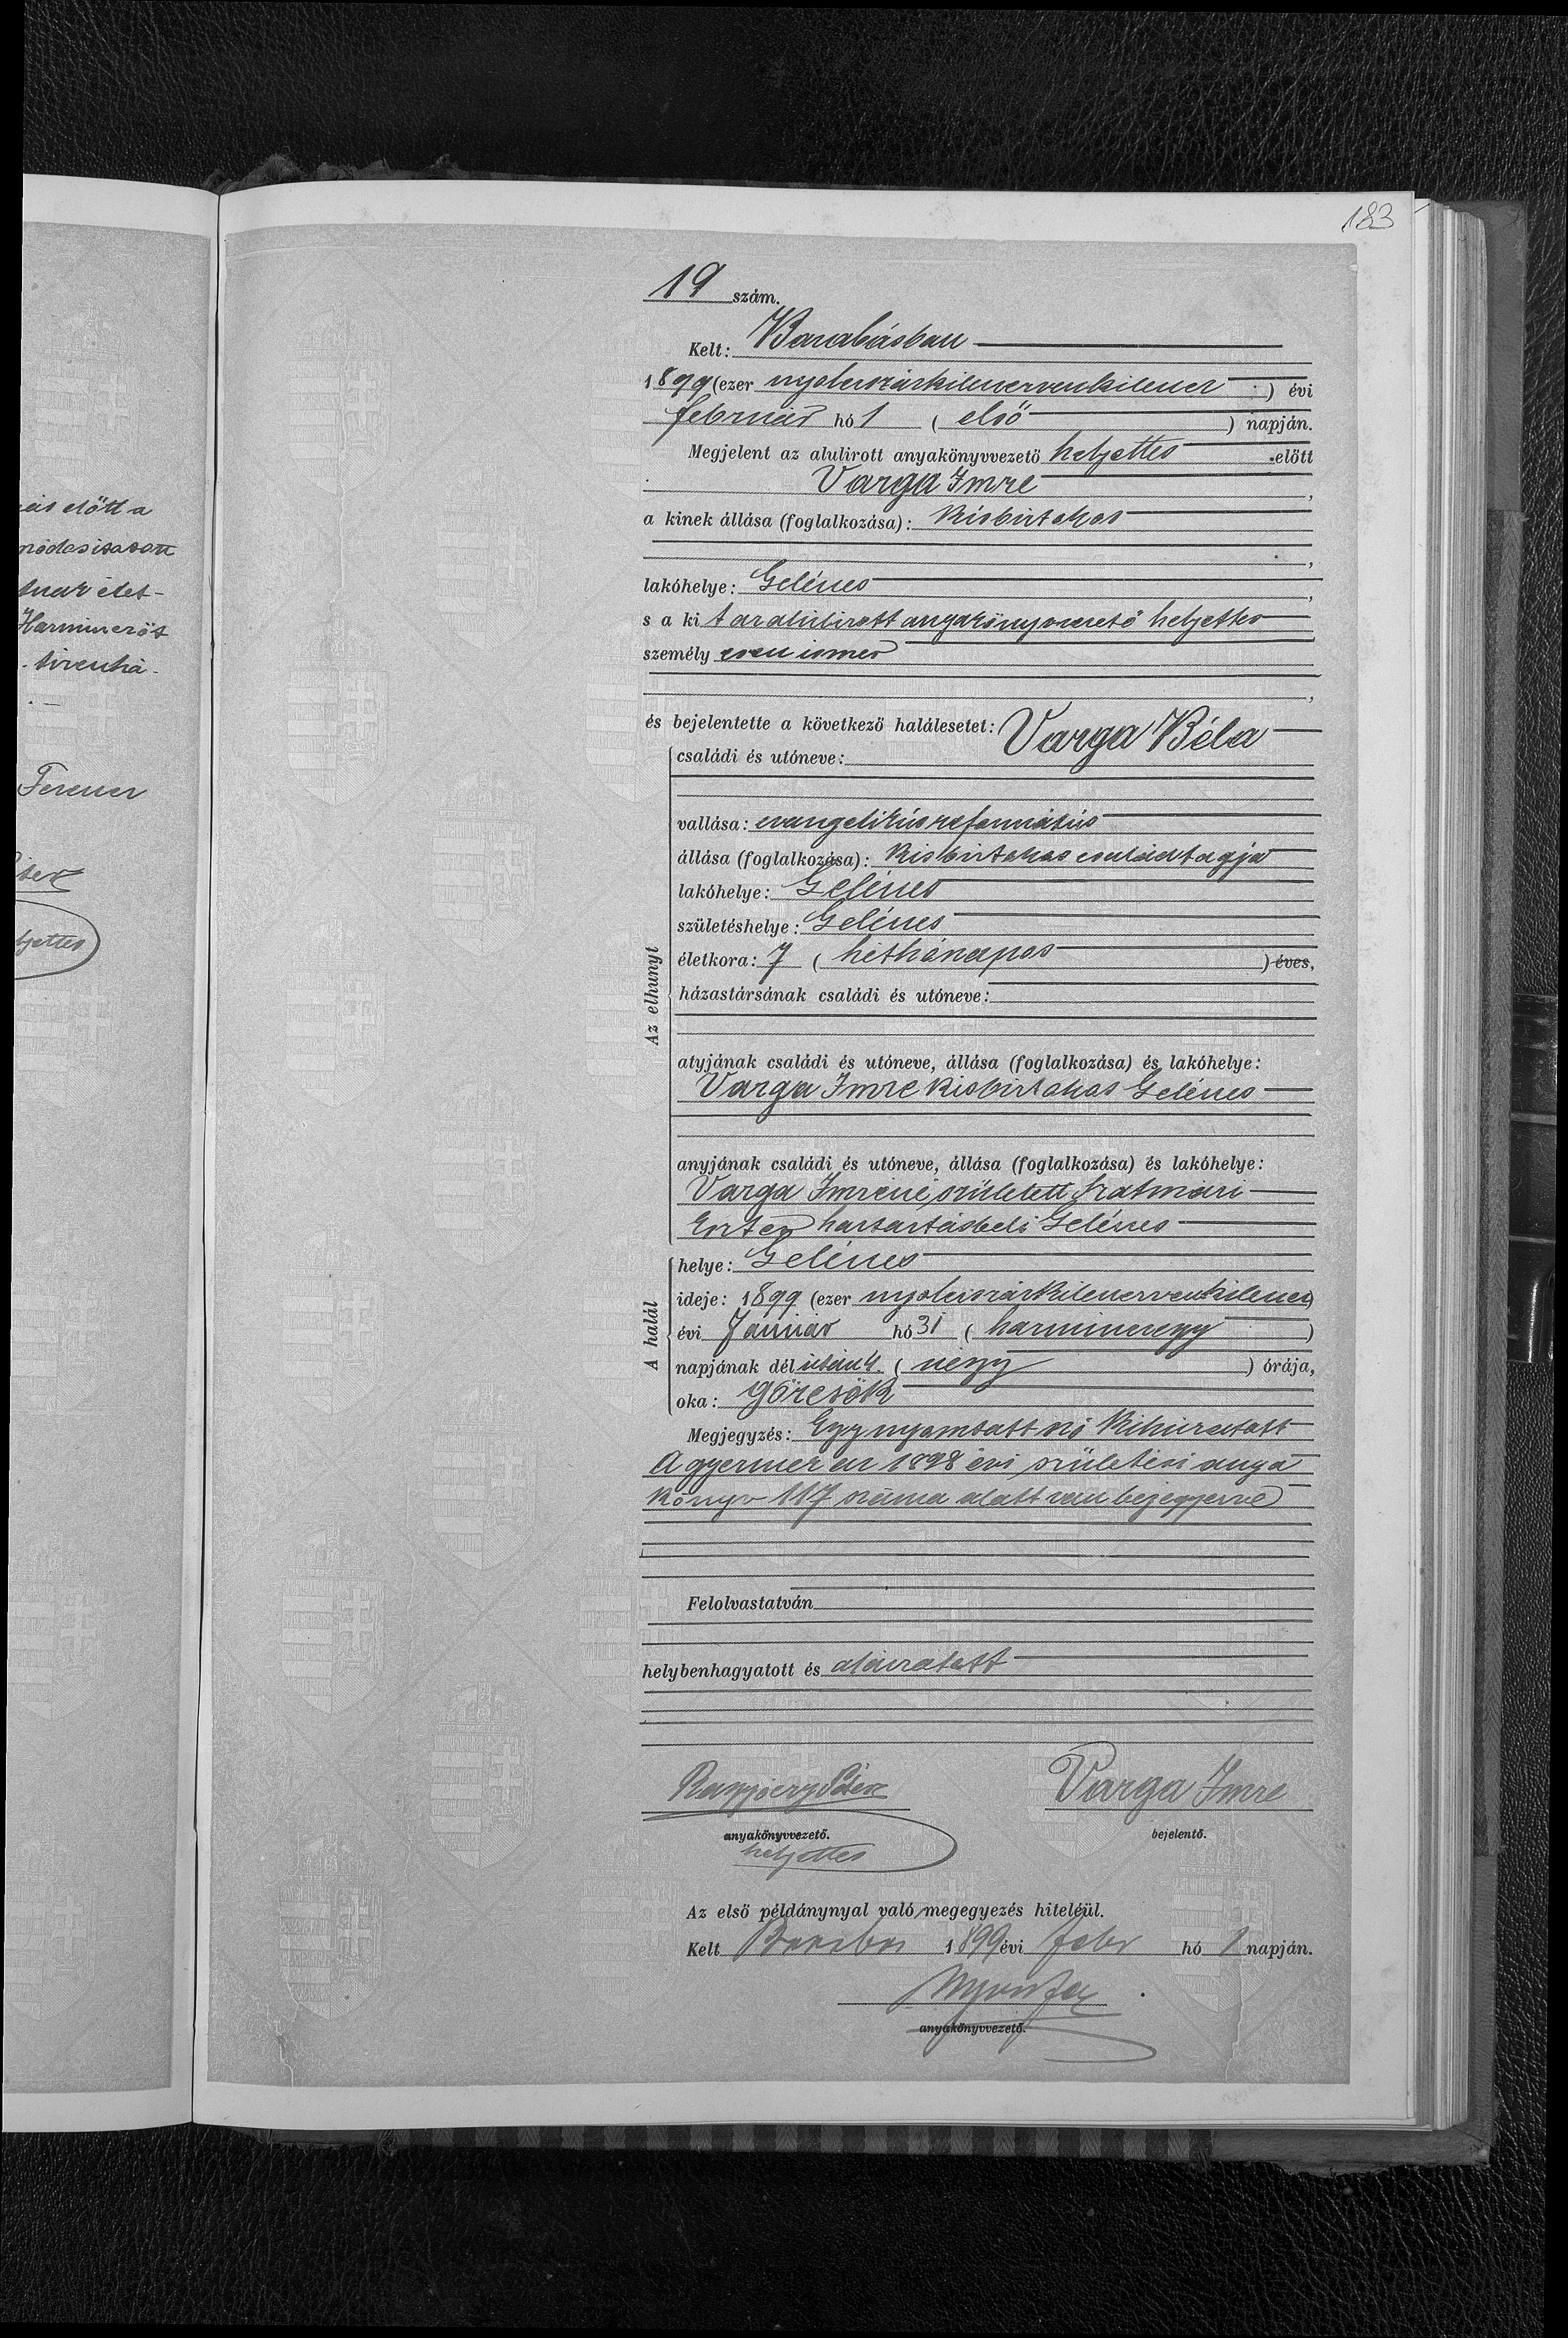 183
eis előtt a
Harmincröt
Ferencz
19 szám.
Kelt: Barabásban
1899 (ezer nyolczszázkilenczvenkilencz) évi
február hó 1 (első) napján.
Megjelent az alulirott anyakönyvvezető helyettes előtt
Varga Imre,
a kinek állása (foglalkozása): kisbirtokos
lakóhelye: Gelénes,
s a kit az alúlírott anyakönyvvezető helyettes
személyesen ismer
és bejelentette a következő halálesetet:
Az elhunyt
családi és utóneve: Varga Béla
vallása: evangelikús református
állása (foglalkozása): kisbirtokos családtagja
lakóhelye: Gelénes
születéshelye: Gelénes
életkora: 7 (héthónapos) éves,
házastársának családi és utóneve:
atyjának családi és utóneve, állása (foglalkozása) és lakóhelye:
Varga Imre kisbirtokos Gelénes
anyjának családi és utóneve, állása (foglalkozása) és lakóhelye:
Varga Imréné született Szatmári
Eszter háztartásbeli Gelénes
A halál
helye: Gelénes
ideje: 1899 (ezer nyolczszázkilenczvenkilencz)
évi Január hó 31 (harminczegy)
napjának délután 4. (négy) órája,
oka: görcsök
Megjegyzés: Egy nyomtatott szó kihúzatott
A gyermek az 1898 évi születési anya
könyv 117 száma alatt van bejegyezve
Felolvastatván
helybenhagyatott és aláíratott
Varga Imre
anyakönyvvezető. bejelentő.
helyettes
Az első példánynyal való megegyezés hiteléül.
Kelt Barabás 1899 évi febr hó 1 napján.
anyakönyvvezető.